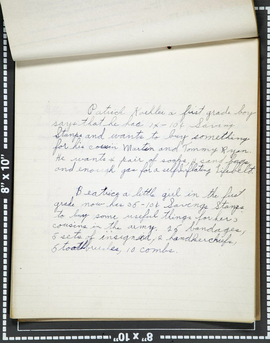 Patrick Kistler a first grade boy
says that he has 14 - 10¢ Saving
Stamps and wants to buy something
for his cousin Martin and Tommy Ryan
He wants a pair of socks, 2
and enough gas for a self inflating lifebelt.
Beatrice a little girl in the first
grade now has 35 - 10¢ Savings Stamps
to buy some useful things for her
cousins in the army. 25 bandages,
5 sets of insignia, 6 handkerchiefs,
5 toothbrushes, 10 combs.
8" x 10"
8" x 10"